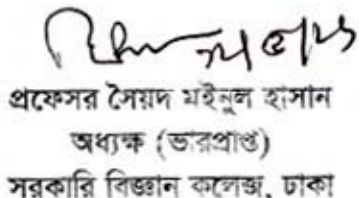 প্রফেসর সৈয়দ মইনুল হাসান
অধ্যক্ষ (ভারপ্রাপ্ত)
সরকারি বিজ্ঞান কলেজ, ঢাকা